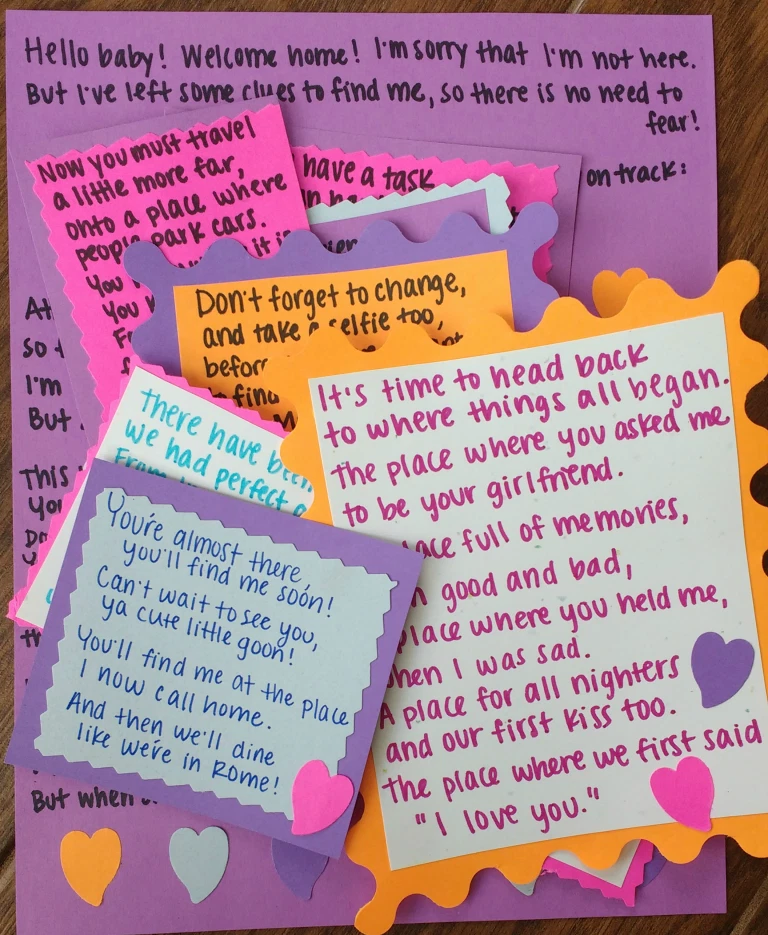 Hello baby! Welcome home! I'm sorry that I'm not here.
But I've left some clues to find me, so there is no need to
fear!
on track:
Now you must travel
a little more far,
onto a place where
people park cars.
You
You
have a task
Don't forget to change,
and take a selfie too,
find
It's time to head back
to where things all began.
The place where you asked me
to be your girlfriend.
full of memories,
good and bad,
place where you held me,
when I was sad.
A place for all nighters
and our first kiss too.
The place where we first said
"I love you."
There have been
we had perfect
From
You're almost there,
you'll find me soon!
Can't wait to see you,
ya cute little goon!
You'll find me at the place
I now call home.
And then we'll dine
like we're in Rome!
At
so
I'm
But
This
But when